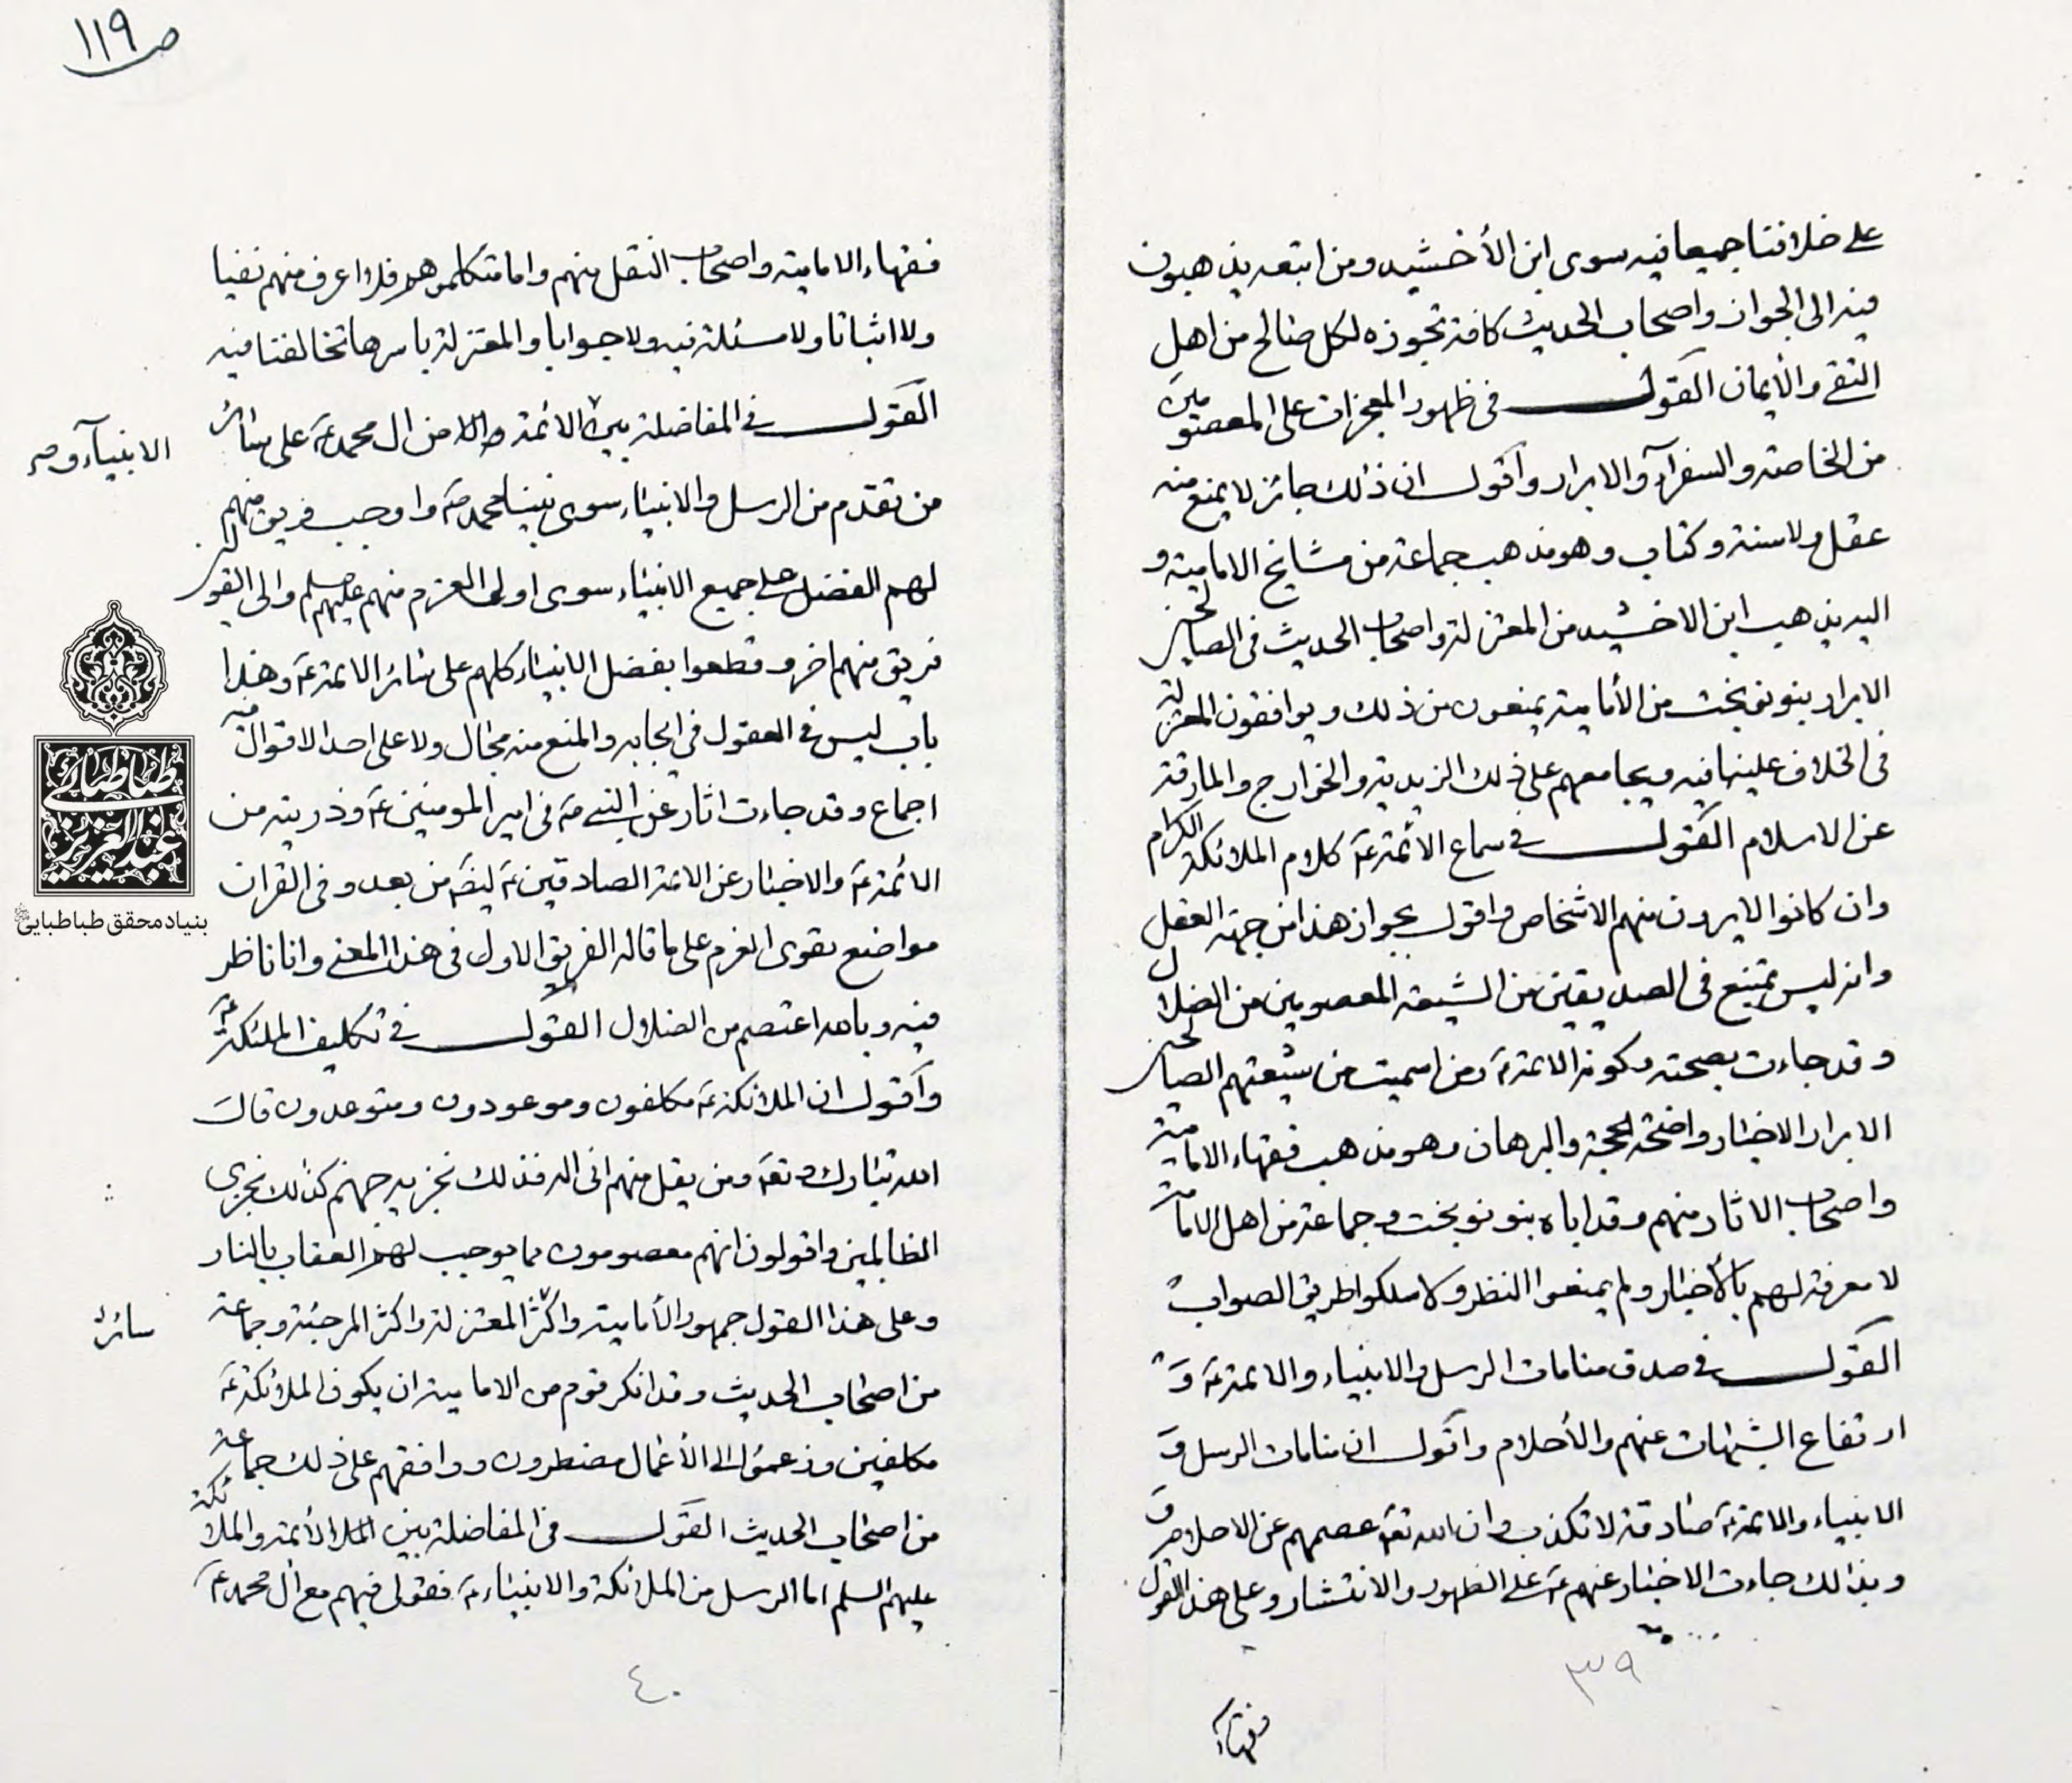 على خلافنا جميعا فيه سوى ابن الأخشيد ومن اتبعه يذهبون
فيه الى الجواز واصحاب الحديث كافة تجوزه لكل صالح من اهل
التقى والأيمان القول في ظهور المعجزات على المعصومين
من الخاصة والسفرآء والابرار واقول ان ذلك جائز لا يمنع منه
عقل ولا سنة وكتاب وهو مذهب جماعة من مشايخ الامامية و
اليه يذهب ابن الاخشيد من المعتزلة واصحاب الحديث في الصالحين
الابرار بنو نوبخت من الأمامية يمنعون من ذلك ويوافقون المعتزلة
في الخلاف علينا فيه ويجامعهم على ذلك الزيدية والخوارج والمارقة
عن الاسلام القول في سماع الأئمة عۤ كلام الملائكة الكرام
وان كانوا لا يرون منهم الاشخاص واقول بجواز هذا من جهة العقل
وانه ليس بممتنع في الصديقين من الشيعة المعصومين من الضلال
وقد جاءت بصحته وكونه الائمة عۤ ومن اسميت من شيعتهم الصالحين
الابرار الاخبار واضحة الحجة والبرهان وهو مذهب فقهاء الامامية
واصحاب الاثار منهم وقد اباه بنو نوبخت وجماعة من اهل الامامة
لا معرفة لهم بالأخبار ولم يمنعوا النظر ولا سلكوا طريق الصواب
القول في صدق منامات الرسل والانبياء والائمة عۤ و
ارتفاع الشبهات عنهم والأحلام واقول ان منامات الرسل و
الانبياء والائمة عۤ صادقة لا تكذب وان الله تعۤ عصمهم عن الاحلام و
وبذالك جاءت الاخبار عنهم عۤ على الظهور والانتشار وعلى هذا القول
٣٩
فقهاء
ص ١١٩
فقهاء الامامية واصحاب النقل منهم واما متكلموهم فلا اعرف منهم نفيا
ولا اثباتا ولا مسئلة فيه ولا جوابا والمعتزلة باسرها تخالفنا فيه
القول في المفاضلة بين الائمة من ال محمد عۤ على سائر
الانبيآء وم
من تقدم من الرسل والانبياء سوى نبينا محمد صۤ واوجب فريق منهم
لهم الفضل على جميع الانبياء سوى اولي العزم منهم عليهم سلم والى القولين
فريق منهم اخر وقطعوا بفضل الانبياء كلهم على سائر الائمة عۤ وهذا
باب ليس في العقول في ايجابه والمنع منه مجال ولا على احد الاقوال فيه
اجماع وقد جاءت اثار عن النبي صۤ في امير المومنين عۤ وذريته من
الائمة عۤ والاخبار عن الائمة الصادقين عۤ ايضۤ من بعد وفي القران
مواضع تقوى العزم على ما قاله الفريق الاول في هذا المعنى وانا ناظر
فيه وبالله اعتصم من الضلال القول في تكليف الملئكة عۤ
واقول ان الملائكة عۤ مكلفون وموعودون ومتوعدون قال
الله تبارك وتعۤ ومن يقل منهم انى اله فذلك نجزيه جهنم كذلك نجزى
الظالمين واقولون انهم معصومون مما يوجب لهم العقاب بالنار
وعلى هذا القول جمهور الأمامية واكثر المعتزلة واكثر المرجئة وجماعة
سائر
من اصحاب الحديث وقد انكر قوم من الامامية ان يكون الملائكة عۤ
مكلفين وزعموا الى الأعمال مضطرون ووافقهم على ذلك جماعة
من اصحاب الحديث القول في المفاضلة بين الأئمة والملائكة
عليهم السلم اما الرسل من الملائكة والانبياء عۤ فقولى فيهم مع ال محمد عۤ
٤٠
طباطبائى
عبدالعزيز
بنیاد محقق طباطبایی